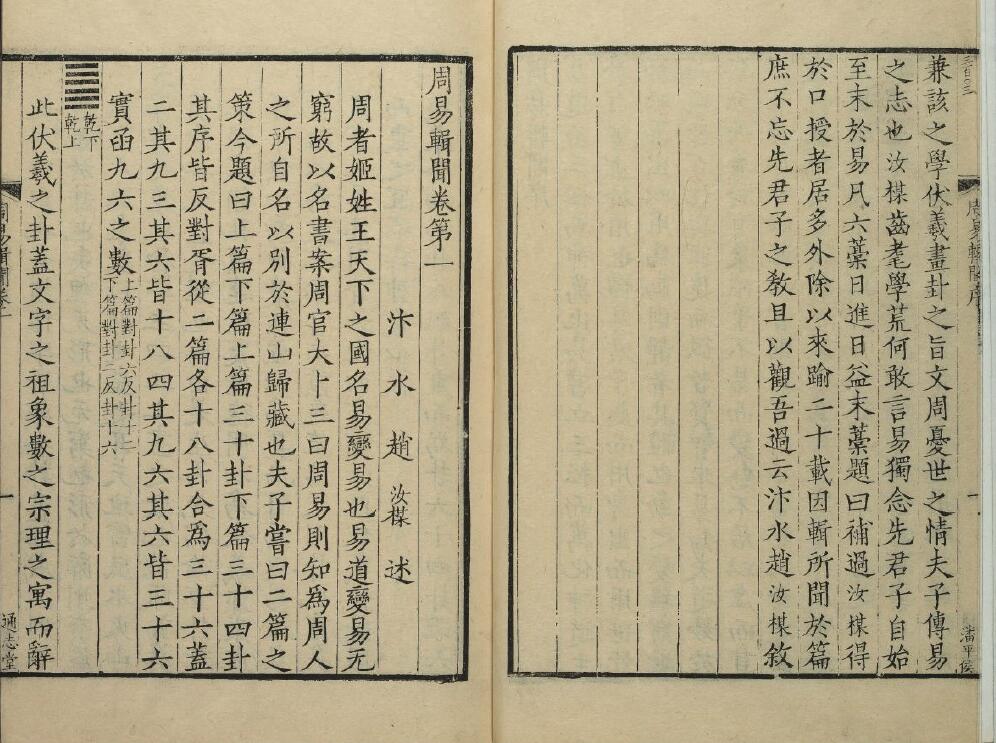 兼該之學伏羲畫卦之旨文周憂世之情夫子傳易
之志也汝楳齒耄學荒何敢言易獨念先君子自始
至末於易凡六藁日進日益末藁題曰補過汝楳得
於口授者居多外除以來踰二十載因輯所聞於篇
庶不忘先君子之教且以觀吾過云汴水趙汝楳敘
周易輯聞卷第一
汴水趙汝楳述
周者姬姓王天下之國名易變易也易道變易无
窮故以名書案周官大卜三曰周易則知為周人
之所自名以別於連山歸藏也夫子嘗曰二篇之
策今題曰上篇下篇上篇三十卦下篇三十四卦
其序皆反對胥從二篇各十八卦合為三十六蓋
二其九三其六皆十八四其九六其六皆三十六
實函九六之數上篇對卦六反卦十二
下篇對卦二反卦十六
乾下
乾上
此伏羲之卦蓋文字之祖象數之宗理之寓而辭
周易輯聞卷一
一
通志堂